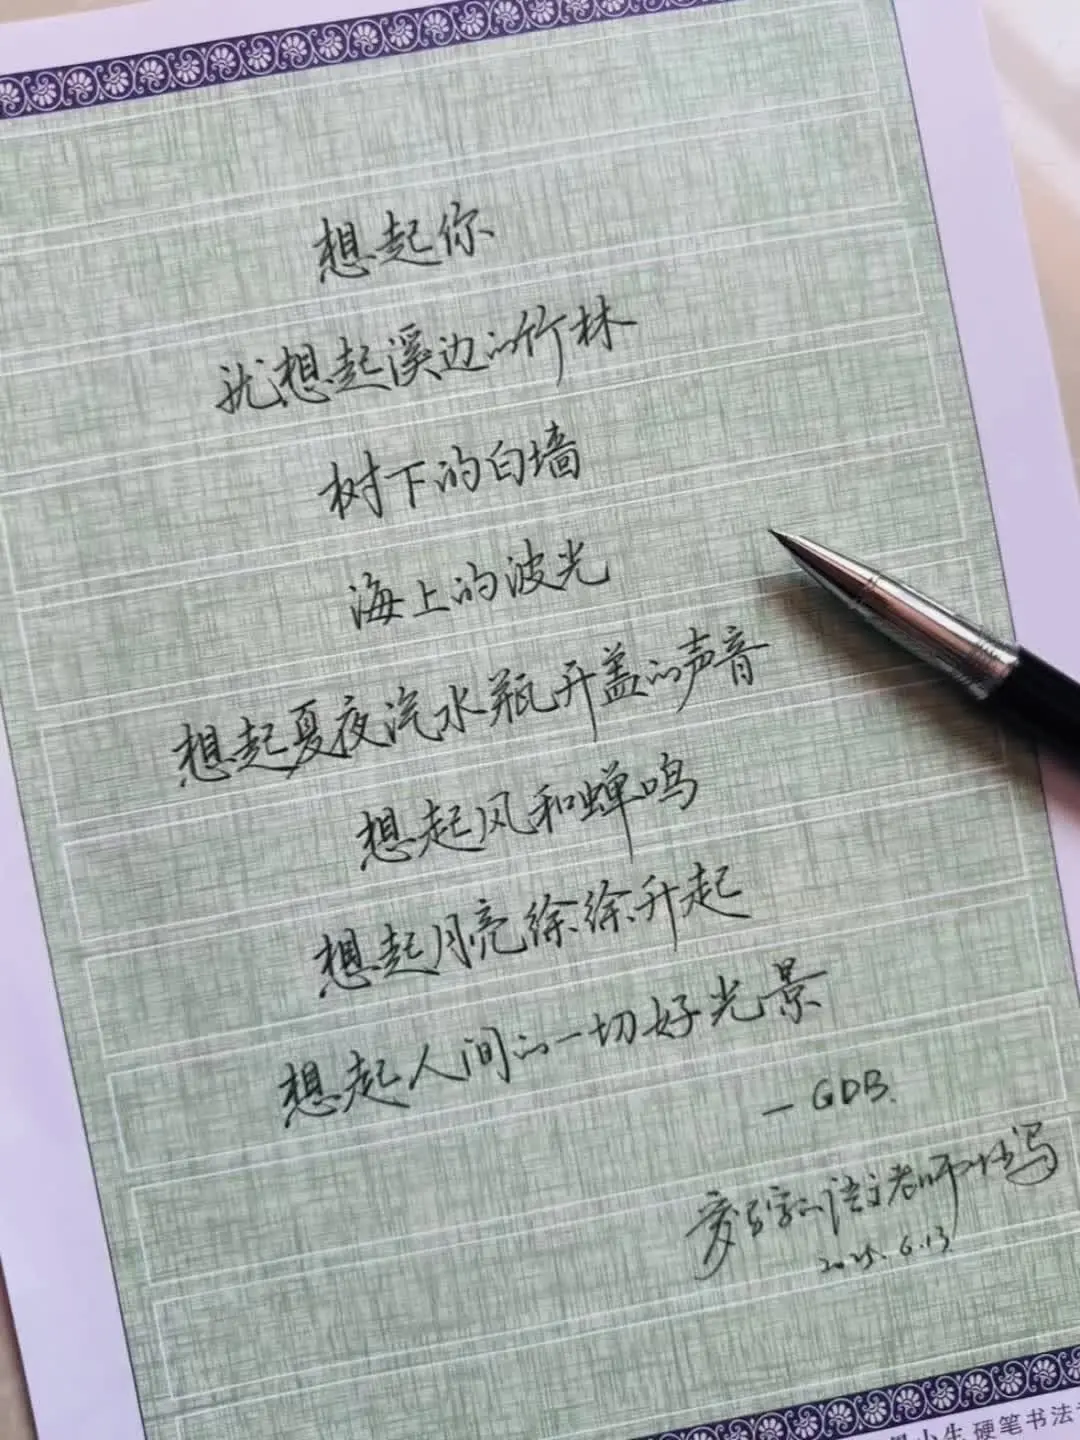 想起你
就想起溪边的竹林
树下的白墙
海上的波光
想起夏夜汽水瓶开盖的声音
想起风和蝉鸣
想起月亮徐徐升起
想起人间的一切好光景
—GDB.
爱写字的语文老师 书写
2025.6.13
小生 硬笔书法